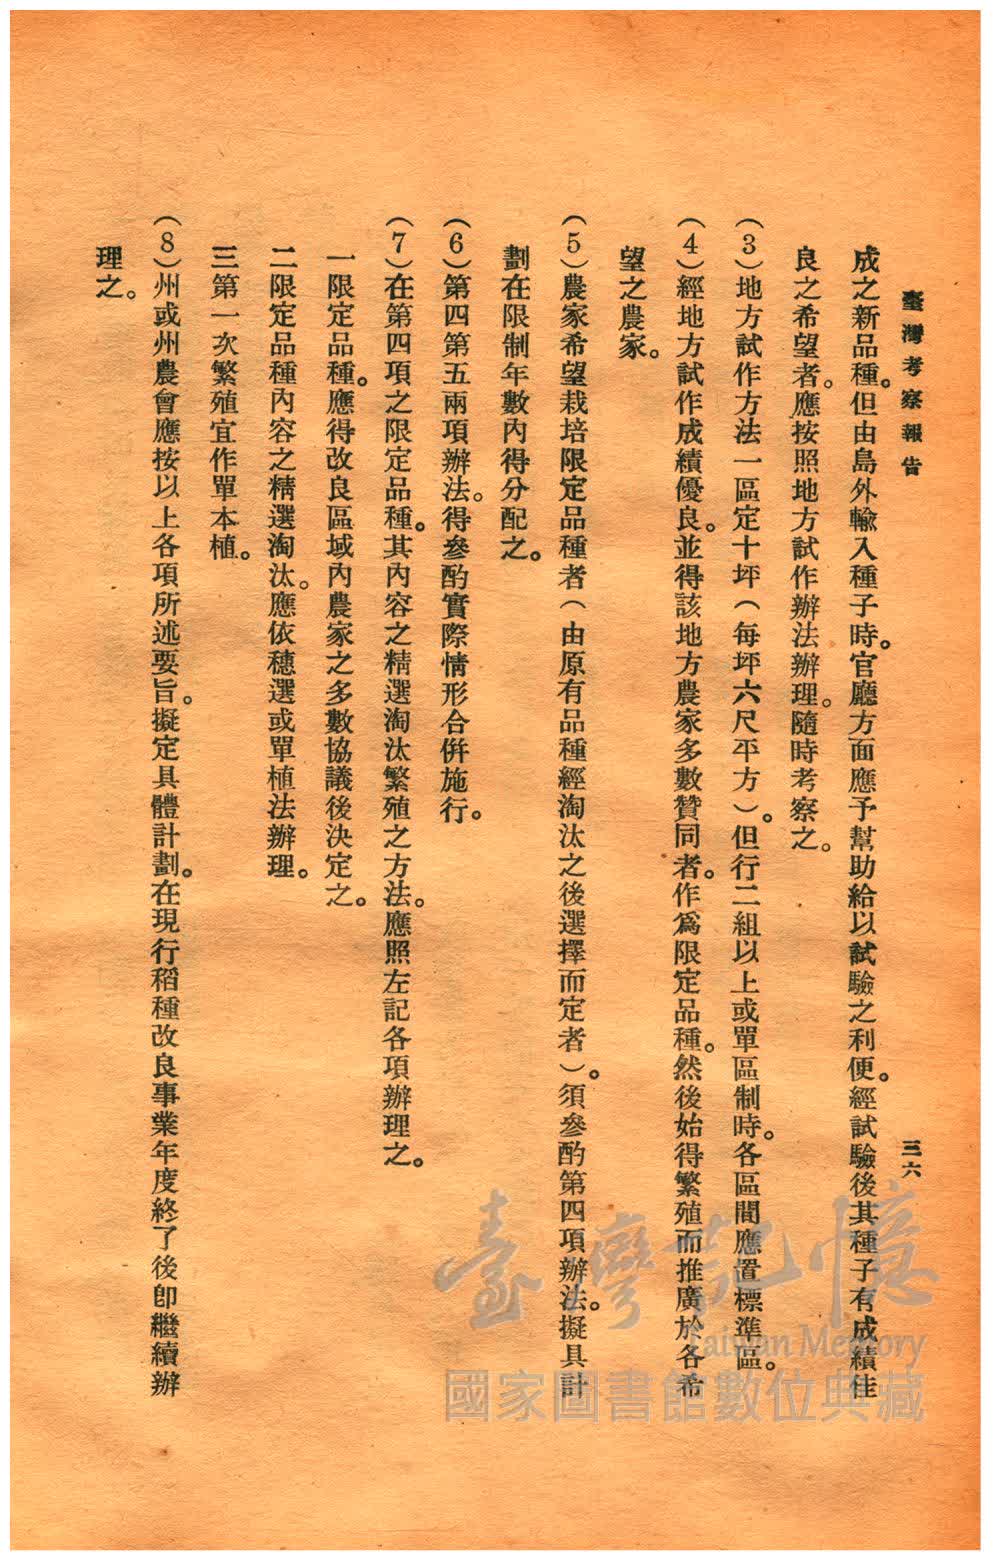 臺灣考察報告
三六
成之新品種。但由島外輸入種子時。官廳方面應予幫助給以試驗之利便。經試驗後其種子有成績佳
良之希望者。應按照地方試作辦法辦理。隨時考察之。
（3）地方試作方法一區定十坪（每坪六尺平方）。但行二組以上或單區制時。各區間應置標準區。
（4）經地方試作成績優良。並得該地方農家多數贊同者。作爲限定品種。然後始得繁殖而推廣於各希
望之農家。
（5）農家希望栽培限定品種者（由原有品種經淘汰之後選擇而定者）。須參酌第四項辦法。擬具計
劃在限制年數內得分配之。
（6）第四第五兩項辦法。得參酌實際情形合併施行。
（7）在第四項之限定品種。其內容之精選淘汰繁殖之方法。應照左記各項辦理之。
一限定品種。應得改良區域內農家之多數協議後決定之。
二限定品種內容之精選淘汰。應依穗選或單植法辦理。
三第一次繁殖宜作單本植。
（8）州或州農會應按以上各項所述要旨。擬定具體計劃。在現行稻種改良事業年度終了後卽繼續辦
理之。
臺灣記憶
Taiwan Memory
國家圖書館數位典藏